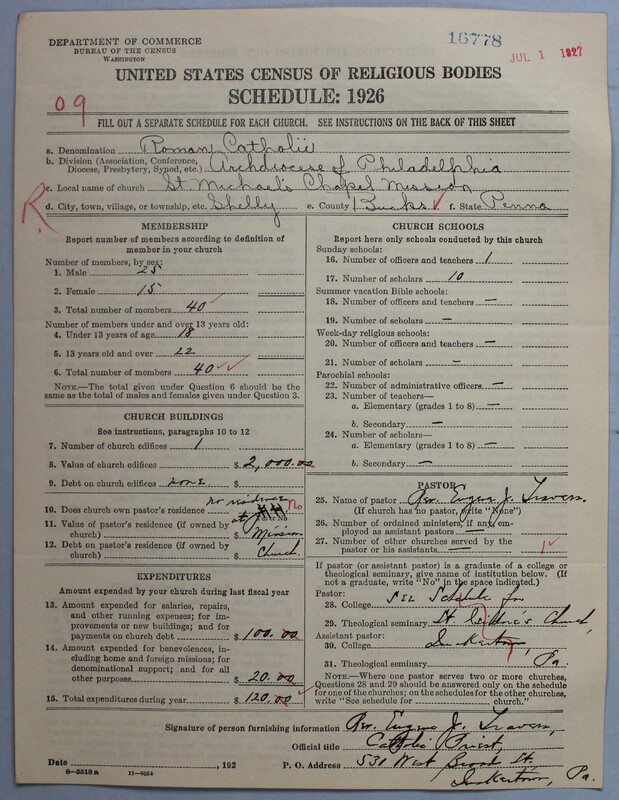 DEPARTMENT OF COMMERCE
BUREAU OF THE CENSUS
WASHINGTON
16778
JUL 1 1927
UNITED STATES CENSUS OF RELIGIOUS BODIES
SCHEDULE: 1926
09
FILL OUT A SEPARATE SCHEDULE FOR EACH CHURCH. SEE INSTRUCTIONS ON THE BACK OF THIS SHEET
a. Denomination Roman Catholic
b. Division (Association, Conference, Diocese, Presbytery, Synod, etc.) Archdiocese of Philadelphia
c. Local name of church St. Michael's Chapel Mission
R
d. City, town, village, or township, etc. Shelly e. County Bucks f. State Penna
MEMBERSHIP
Report number of members according to definition of
member in your church
Number of members, by sex:
1. Male 25
2. Female 15
3. Total number of members 40
Number of members under and over 13 years old:
4. Under 13 years of age 18
5. 13 years old and over 22
6. Total number of members 40
NOTE.—The total given under Question 6 should be
the same as the total of males and females given under Question 3.
CHURCH BUILDINGS
See instructions, paragraphs 10 to 12
7. Number of church edifices 1
8. Value of church edifices $ 2,000.00
9. Debt on church edifices none $
10. Does church own pastor's residence no residence No
Yes or No
11. Value of pastor's residence (if owned by
church) $ at Mission
12. Debt on pastor's residence (if owned by
church) $ Church
EXPENDITURES
Amount expended by your church during last fiscal year
13. Amount expended for salaries, repairs,
and other running expenses; for im-
provements or new buildings; and for
payments on church debt $ 100.00
14. Amount expended for benevolences,
including home and foreign missions; for
denominational support; and for all
other purposes $ 20.00
15. Total expenditures during year $ 120.00
CHURCH SCHOOLS
Report here only schools conducted by this church
Sunday schools:
16. Number of officers and teachers 1
17. Number of scholars 10
Summer vacation Bible schools:
18. Number of officers and teachers —
19. Number of scholars —
Week-day religious schools:
20. Number of officers and teachers —
21. Number of scholars —
Parochial schools:
22. Number of administrative officers —
23. Number of teachers—
a. Elementary (grades 1 to 8) —
b. Secondary —
24. Number of scholars—
a. Elementary (grades 1 to 8) —
b. Secondary —
PASTOR
25. Name of pastor Rev. Eugene J. Travers.
(If church has no pastor, write "None")
26. Number of ordained ministers, if any, em-
ployed as assistant pastors —
27. Number of other churches served by the
pastor or his assistants — 1
If pastor (or assistant pastor) is a graduate of a college or
theological seminary, give name of institution below. (If
not a graduate, write "No" in the space indicated.)
Pastor:
28. College See Schedule for
29. Theological seminary St. Isidore's Church,
Assistant pastor:
30. College Quakertown,
31. Theological seminary Pa.
NOTE.—Where one pastor serves two or more churches,
Questions 28 and 29 should be answered only on the schedule
for one of the churches; on the schedules for the other churches,
write "See schedule for church."
Signature of person furnishing information Rev. Eugene J. Travers,
Official title Catholic Priest,
Date , 192 P. O. Address 531 West Broad St,
Quakertown, Pa.
8-5518a 11-9054